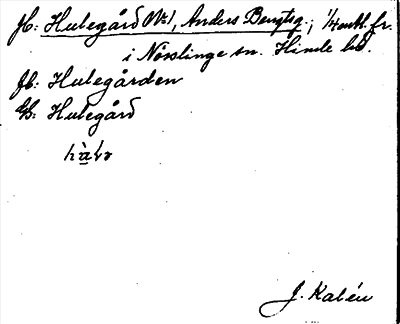 Jb: Hulegård No 1, Anders Bengtsg., 1/4 mtl. fr.
i Nösslinge sn. Himle hd.
Jb: Hulegården
GS: Hulegård
J. Kalén